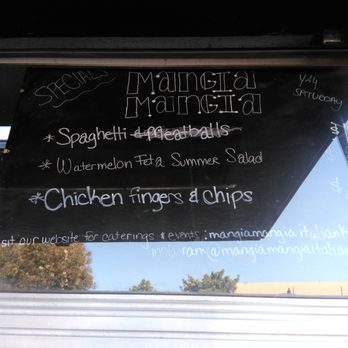 SPECIALS
MANGIA
MANGIA
YAY
SATURDAY
* Spaghetti & Meatballs
* Watermelon Feta Summer Salad
* Chicken fingers & chips
sit our website for caterings & events: mangiamangia.italiank
ram/a mangiamangiaitalian